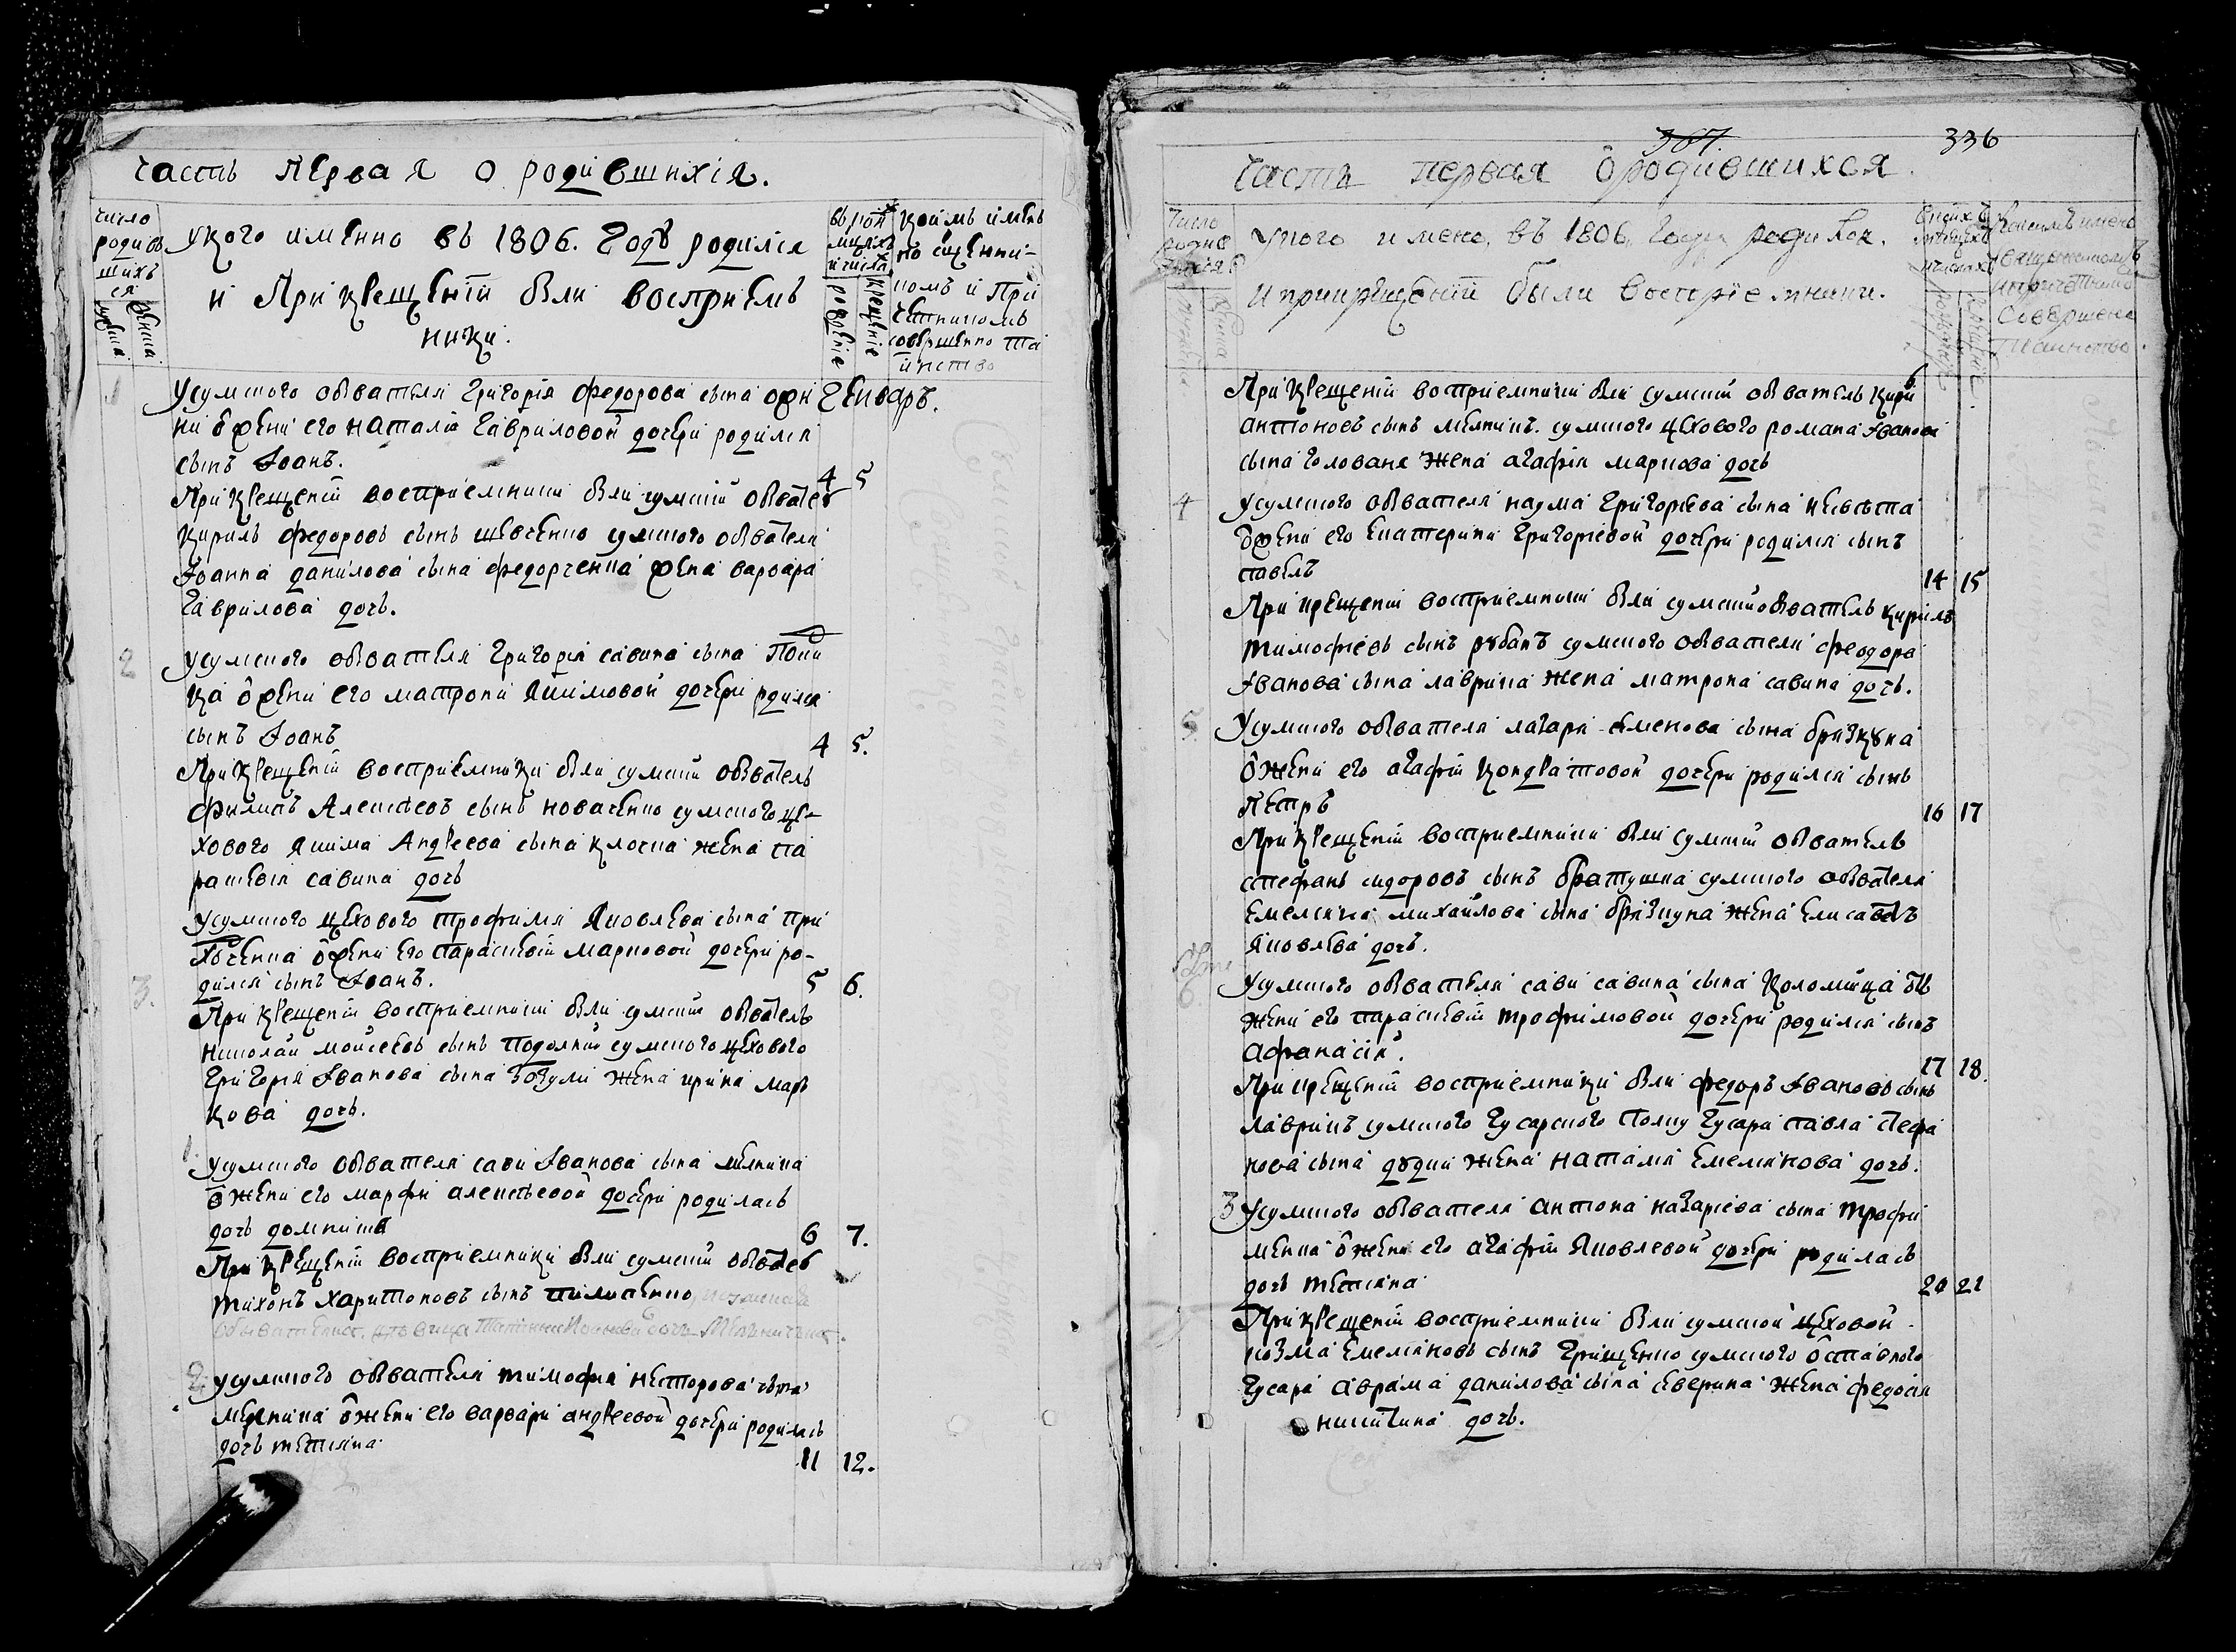 Часть первая о родившихся.
число родившихся
мужеска
женска
Укого имѣнно въ 1806. Годѣ родился
и При крещеній были восприѣмъ
ники.
въ кои
мѣсяцѣ
и числа
рожденіе
крещеніе
коимъ имѣнъ
но сщенни-
комъ и При
четникомъ
совершенно та
инство
1
Генваръ.
Усумского обвателя Григорія федорова сына
ни ѿ жени его наталіи Гавриловой дочери родился
сынъ Іоанъ.
4 5
При крещеній восприемники были сумскій обватель
кирилъ федоровъ сынъ шевченко сумского обвателя
Іоанна данилова сына федорченка жена варвара
Гаврилова дочь.
2
Усумского обвателя Григорія савина сына Попи
ка ѿ жени его матрони Якимовой дочери рдился
сынъ Іоанъ
4 5.
При крещеній восприемники были сумскій обватель
филипъ Алексѣевъ сынъ новаченко сумского це-
хового Якима Андреева сына клочка жена па
раскевія савина дочь
Усумского цехового трофима Яковлева сына при
ходченка ѿ жени его параскевіи марковой дочери ро-
дился сынъ Іоанъ.
3.
5 6.
При крещеній восприемники были сумскій обватель
николай мойсеевъ сынъ подолякъ сумского цехового
Григорія Іванова сына зозули жена ирина мар
кова дочь.
1.
Усумского обвателя сави Іванова сына мелника
ѿ жени его марфи алексѣевой дочери родилась
дочь домникія
6 7.
При крещеній восприемники были сумскій обватель
тихонъ харитоновъ сынъ пилипенко
2
Усумского обвателя тимофія несторова сына
мелника ѿ жени его варвари андреевой дочери родилась
дочь тетіяна
11 12.
336
Часть первая о родившихся.
Число
Укого имено, въ 1806. Годѣ родился.
и при крещеній были восприемники.
Коимъ имено
и причетникомъ
Совершено
Таинство.
При крещеній восприемники были сумскій обватель кирил
антоновъ сынъ мелникъ. сумского цехового романа Іванова
сына голованя жена агафія маркова дочь
4
Усумского обвателя наума Григорієва сына
ѿ жени его Екатерини Григорієвой дочери родился сынъ
павелъ
14 15
При крещеній восприемники были сумскій обватель кирилъ
тимофіевъ сынъ рубанъ сумского обвателя феодора
Іванова сына лаврика жена матрона савина дочь.
5
Усумского обвателя лазаря Семенова сына брязкуна
ѿ жени его агафіи кондратовой дочери родился сынъ
Петръ
16 17
При крещеній восприемники были сумскій обватель
стефанъ сидоровъ сынъ братушка сумского обвателя
Емеляна михайлова сына брязкуна жена Елисаветъ
Яковлева дочь.
6.
Усумского обвателя сави савина сына коломійца ѿ
жени его параскевіи трофимовой дочери родился сынъ
афанасій.
17 18.
При крещеній восприемники были федоръ Івановъ сынъ
лаврикъ сумского Гусарского полку Гусара павла стефа
нова сына дудки жена наталія Емелянова дочь.
3
Усумского обвателя антона назаріева сына трофи
менка ѿ жени его агафіи Яковлевой дочери родилась
дочь тетіяна
20 21
При крещеній восприемники были сумской цеховой
козма Емеляновъ сынъ Грищенко сумского ѿставного
Гусара аврама данилова сына Северина жена федосія
никитина дочь.